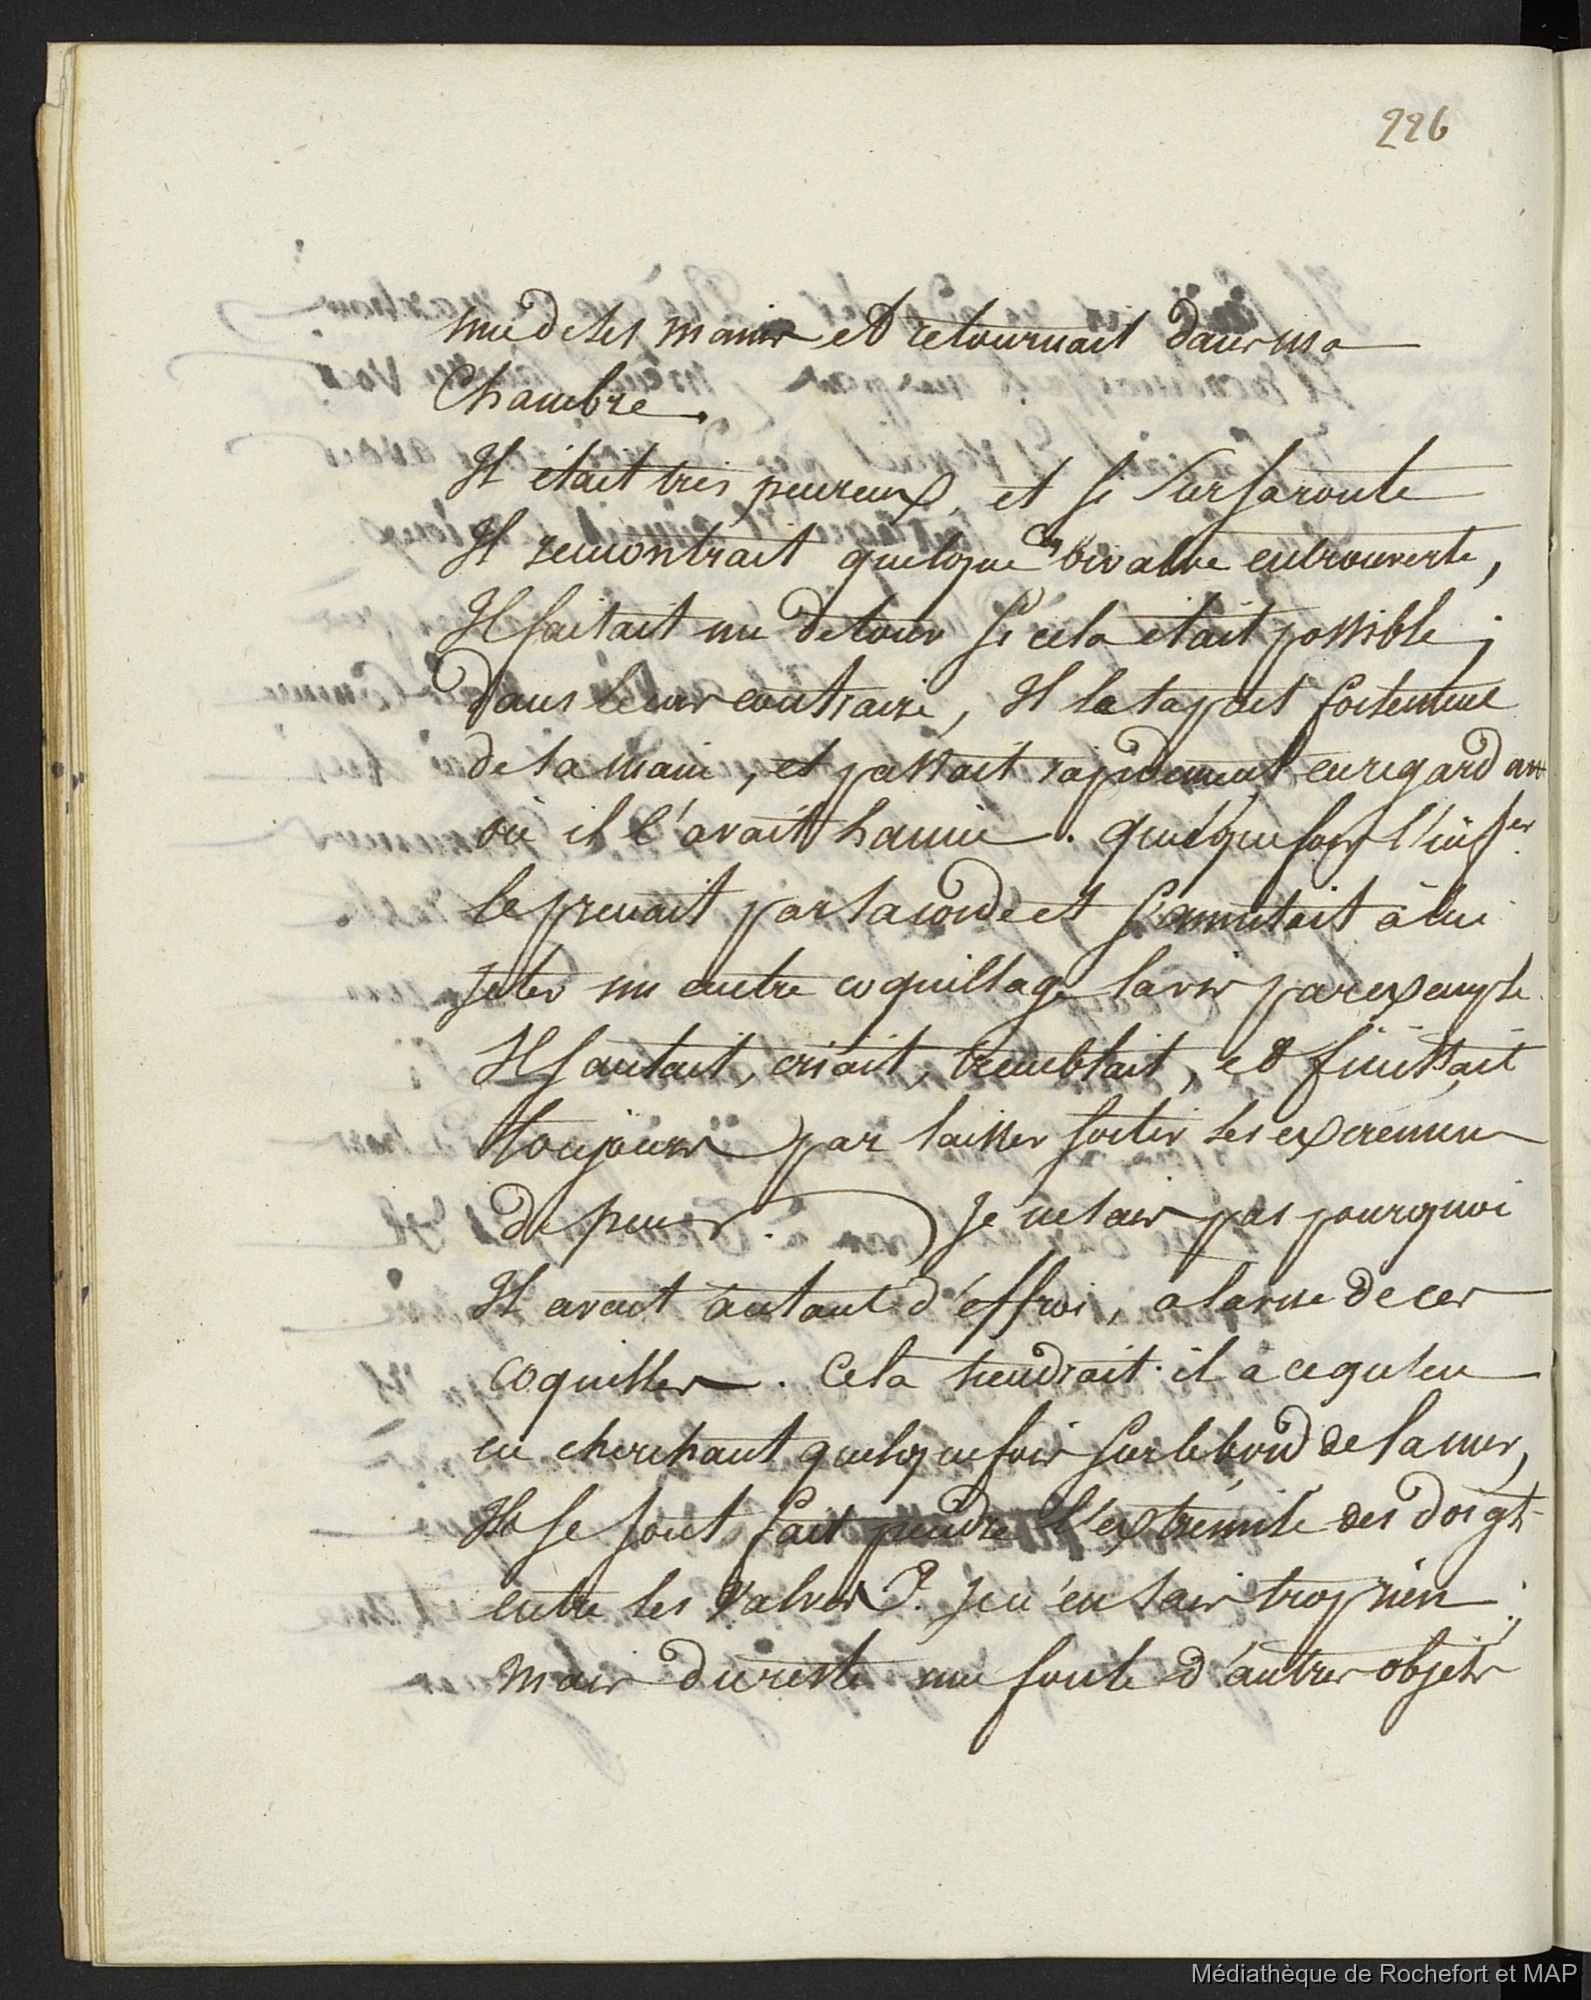 226
une de ses mains et retournait dans ma
Chambre.
Il était très peureux, et si sur sa route
Il rencontrait quelque Clle bivalve entrouverte,
Il faisait un détour si cela était possible ;
Dans le cas contraire, Il la tapait fortement
de sa main, et passait rapidement en regardant
où il l'avait lancée. quelquefois l'inf.er
le prenait par sa corde et s'amusait à lui
jeter un autre coquillage la vis par exemple.
Il sautait, criait, tremblait, et finissait
toujours par laisser sortir ses excrémens
de peur. Je ne sais pas pourquoi
Il avait autant d'effroi, à la vue de ces
coquilles. Cela tiendrait-il à ce qu'en
en cherchant quelquefois sur le bord de la mer,
Ils se sont fait prendre l'extrémité des doigts
entre les valves ? Je n'en sais trop rien ;
mais du reste une foule d'autres objets
Médiathèque de Rochefort et MAP